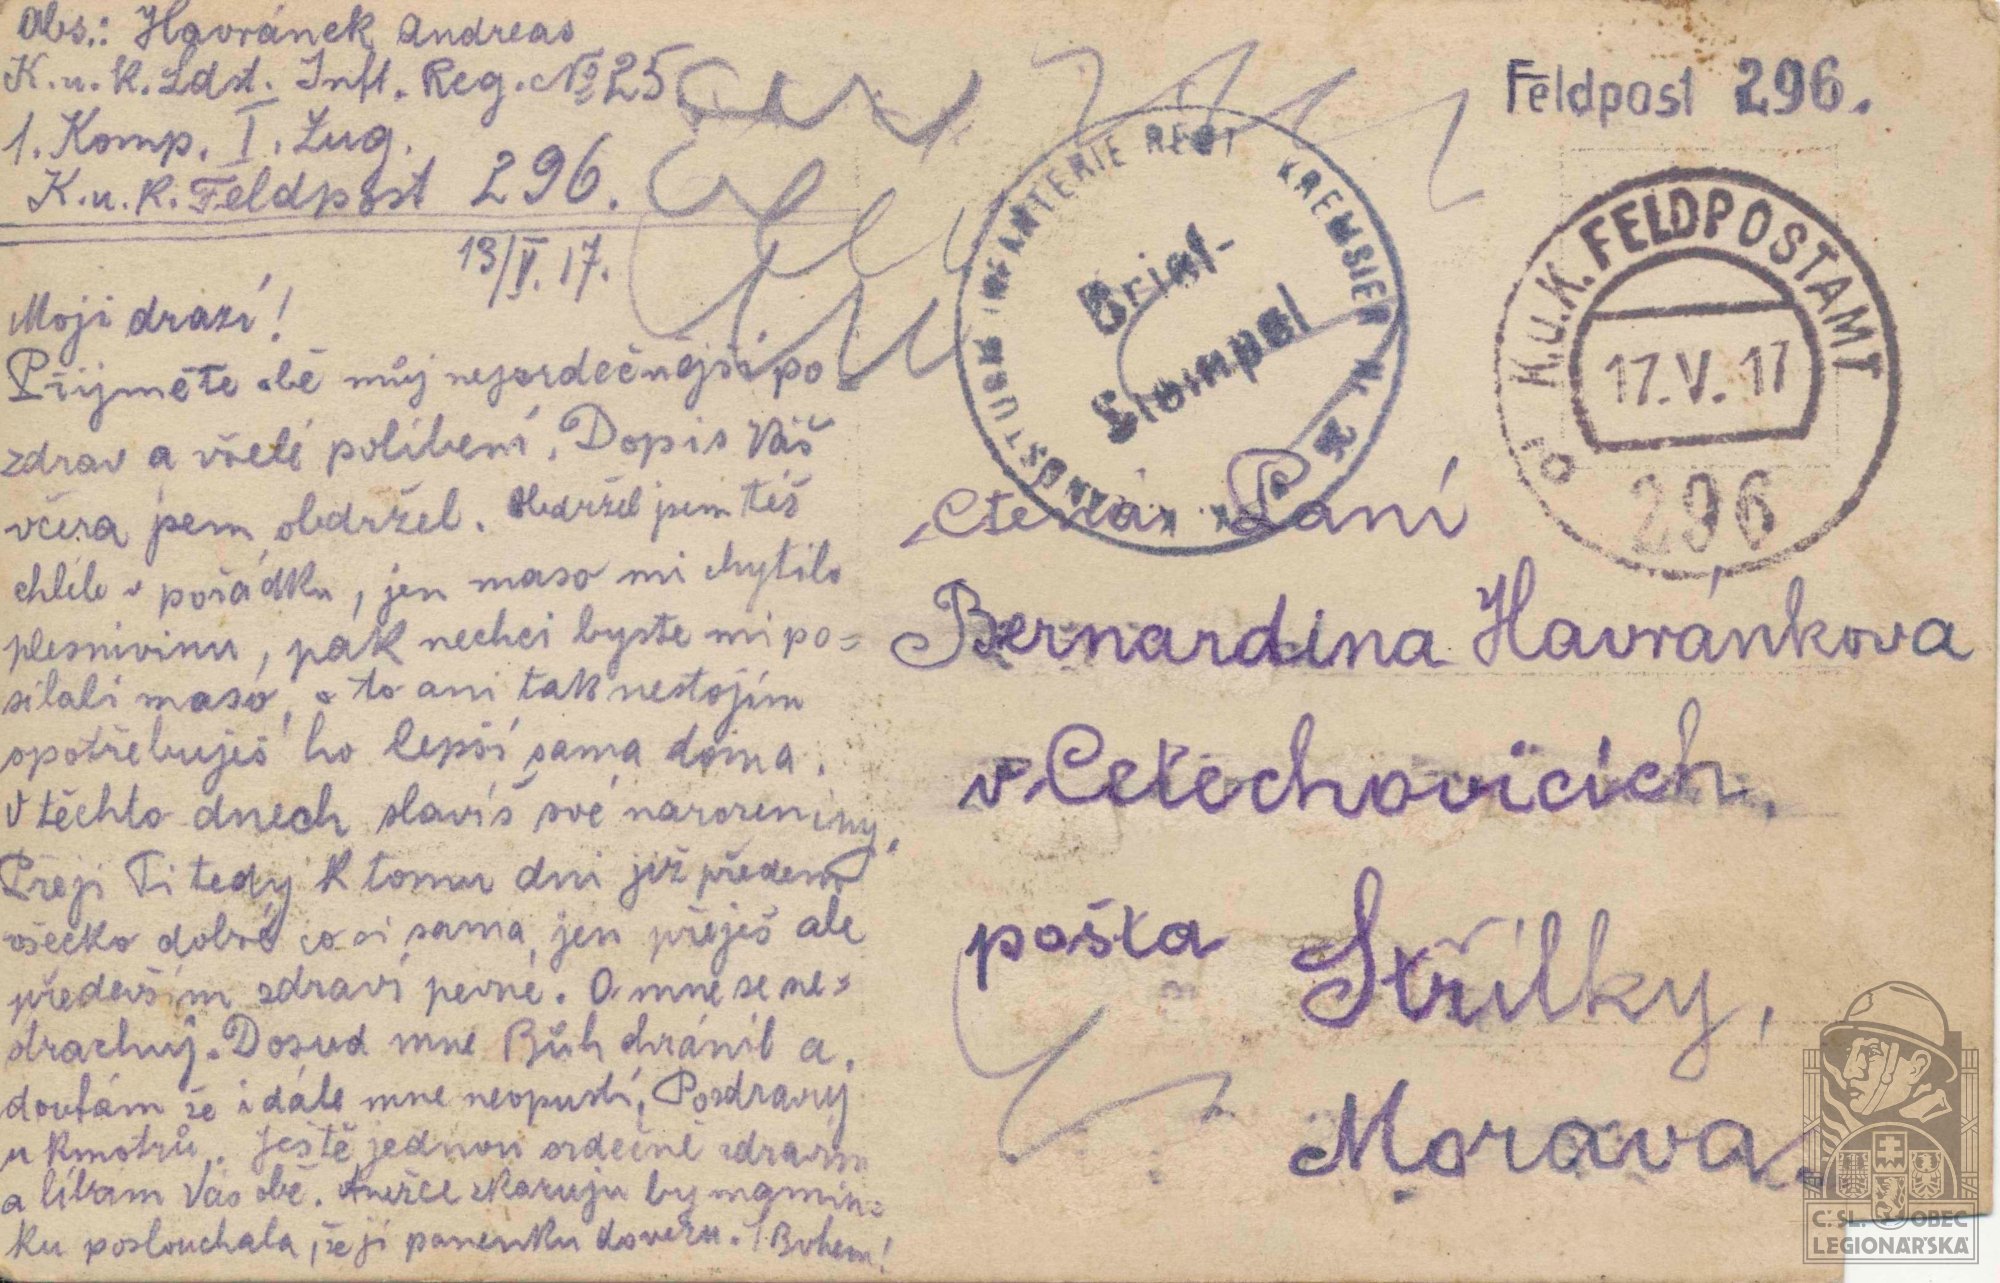 Abs.: Havránek Andreas
K.u.k. Ldst. Inft. Reg. No 25
1. Komp. I. Zug.
K.u.k. Feldpost 296.
13/V.17.
Moji drazí!
Přijměte obě můj nejsrdečnější po
zdrav a vřelé políbení. Dopis Váš
včera jsem obdržel. Obdržel jsem též
chléb v pořádku, jen maso mi chytilo
plesnivinu, pak nechci byste mi po=
sílali maso, o to ani tak nestojím
opotřebuješ ho lepší sama doma.
V těchto dnech slavíš své narozeniny,
Přeji Ti tedy k tomu dni již předem
všecko dobré co si sama jen přeješ ale
především zdraví pevné. O mne se ne=
strachuj. Dosud mne Bůh chránil a
doufám že i dále mne neopustí. Pozdravuj
u kmotrů. Ještě jednou srdečně zdravím
a líbám Vás obě. Anežce vzkazuju by mamin=
ku poslouchala, že jí panenku dovezu. S Bohem!
Feldpost 296.
K.u.K. FELDPOSTAMT
17.V.17
d
296
INFANTERIE REGT KREMSIER N. 25
K.K. LANDSTURM
Brief-
Stempel
Ctěná Paní
Bernardina Havránkova
v Cetechovicích,
pošta Střílky,
Morava.
Č.SL. OBEC
LEGIONÁŘSKÁ